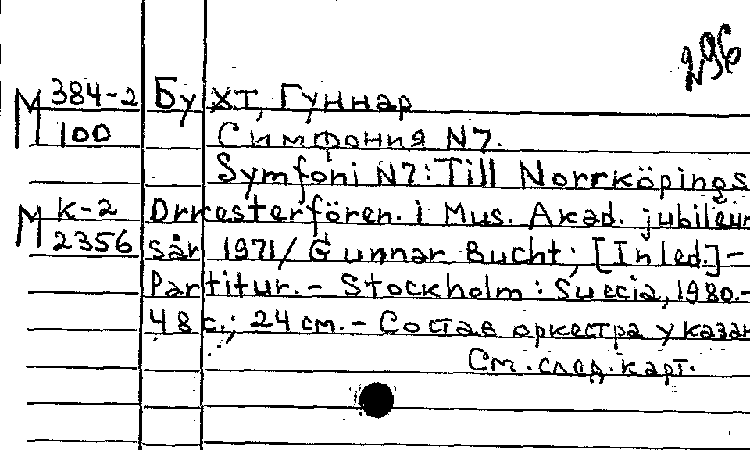 296
М 384-2 Бухт, Гуннар
100 Симфония N7.
Symfoni N7: Till Norrköpings
М К-2 Orkesterfören. i Mus. Akad. jubileum
2356 sår 1971/ Gunnar Bucht; [Inled.]-
Partitur.- Stockholm: Suecia, 1980.-
48 с.; 24 см.- Состав оркестра указан
См. след. карт.